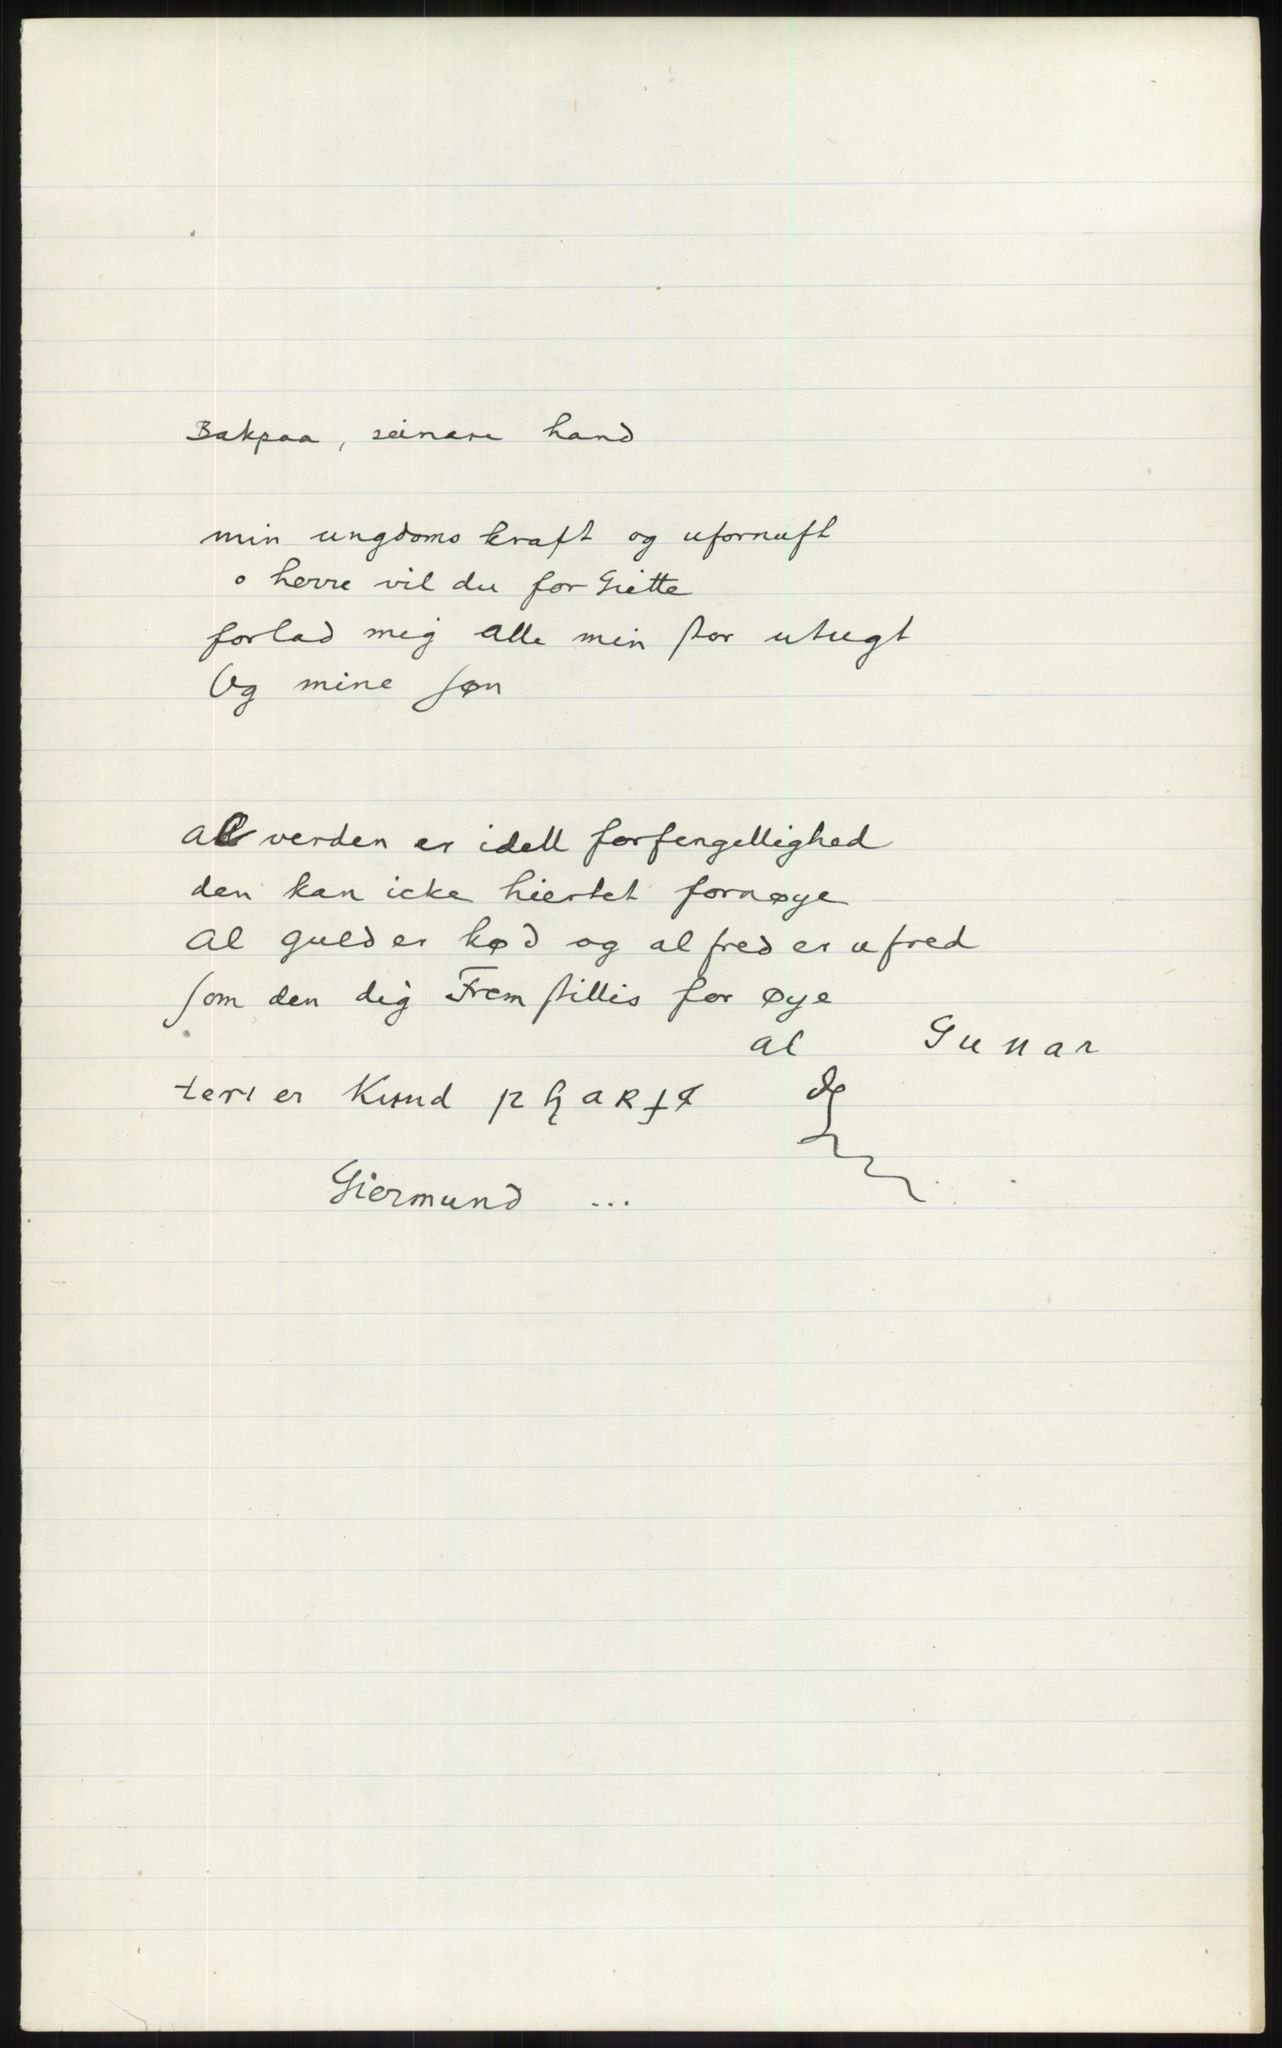 Bakpaa, seinare hand
min ungdoms kraft og ufornuft
o herre vil du for Giette
forlad mig alle min ſtor utugt
Og mine ſøn
al verden er idell forfengellighed
den kan icke hiertet fornøye
al guld er kød og al fred er ufred
ſom den dig Frem ſtillis for øye
al Gunar
er Knud
Giermund ...